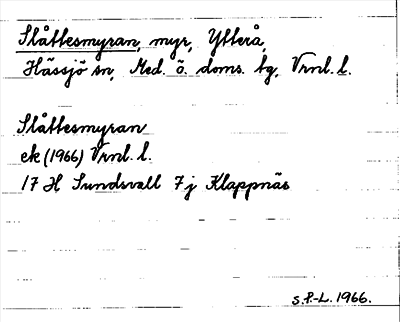 Slåttesmyran, myr, Ytterå,
Hässjö sn, Med. ö. doms. tg, Vrnl. l.
Slåttesmyran
ek (1966) Vrnl. l.
17 H Sundsvall 7j Klappnäs
S.P.-L. 1966.